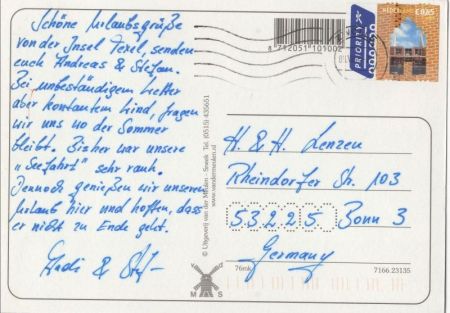 Schöne Urlaubsgrüße
von der Insel Texel, senden
euch Andreas & Stefan.
Bei unbeständigem Wetter
aber konstantem Wind, fragen
wir uns wo der Sommer
bleibt. Bisher war unsere
"Seefahrt" sehr rauh.
Dennoch genießen wir unseren
Urlaub hier und hoffen, dass
er nicht zu Ende geht.
Andi & Stef
© Uitgeverij van der Meulen - Sneek Tel. (0515) 435651
www.vandermeulen.nl
V M S
8 712051 101002
PRIORITY
€ 0,65
H. & H. Lenzen
Rheindorfer Str. 103
53225 Bonn 3
Germany
76mk
7166.23135